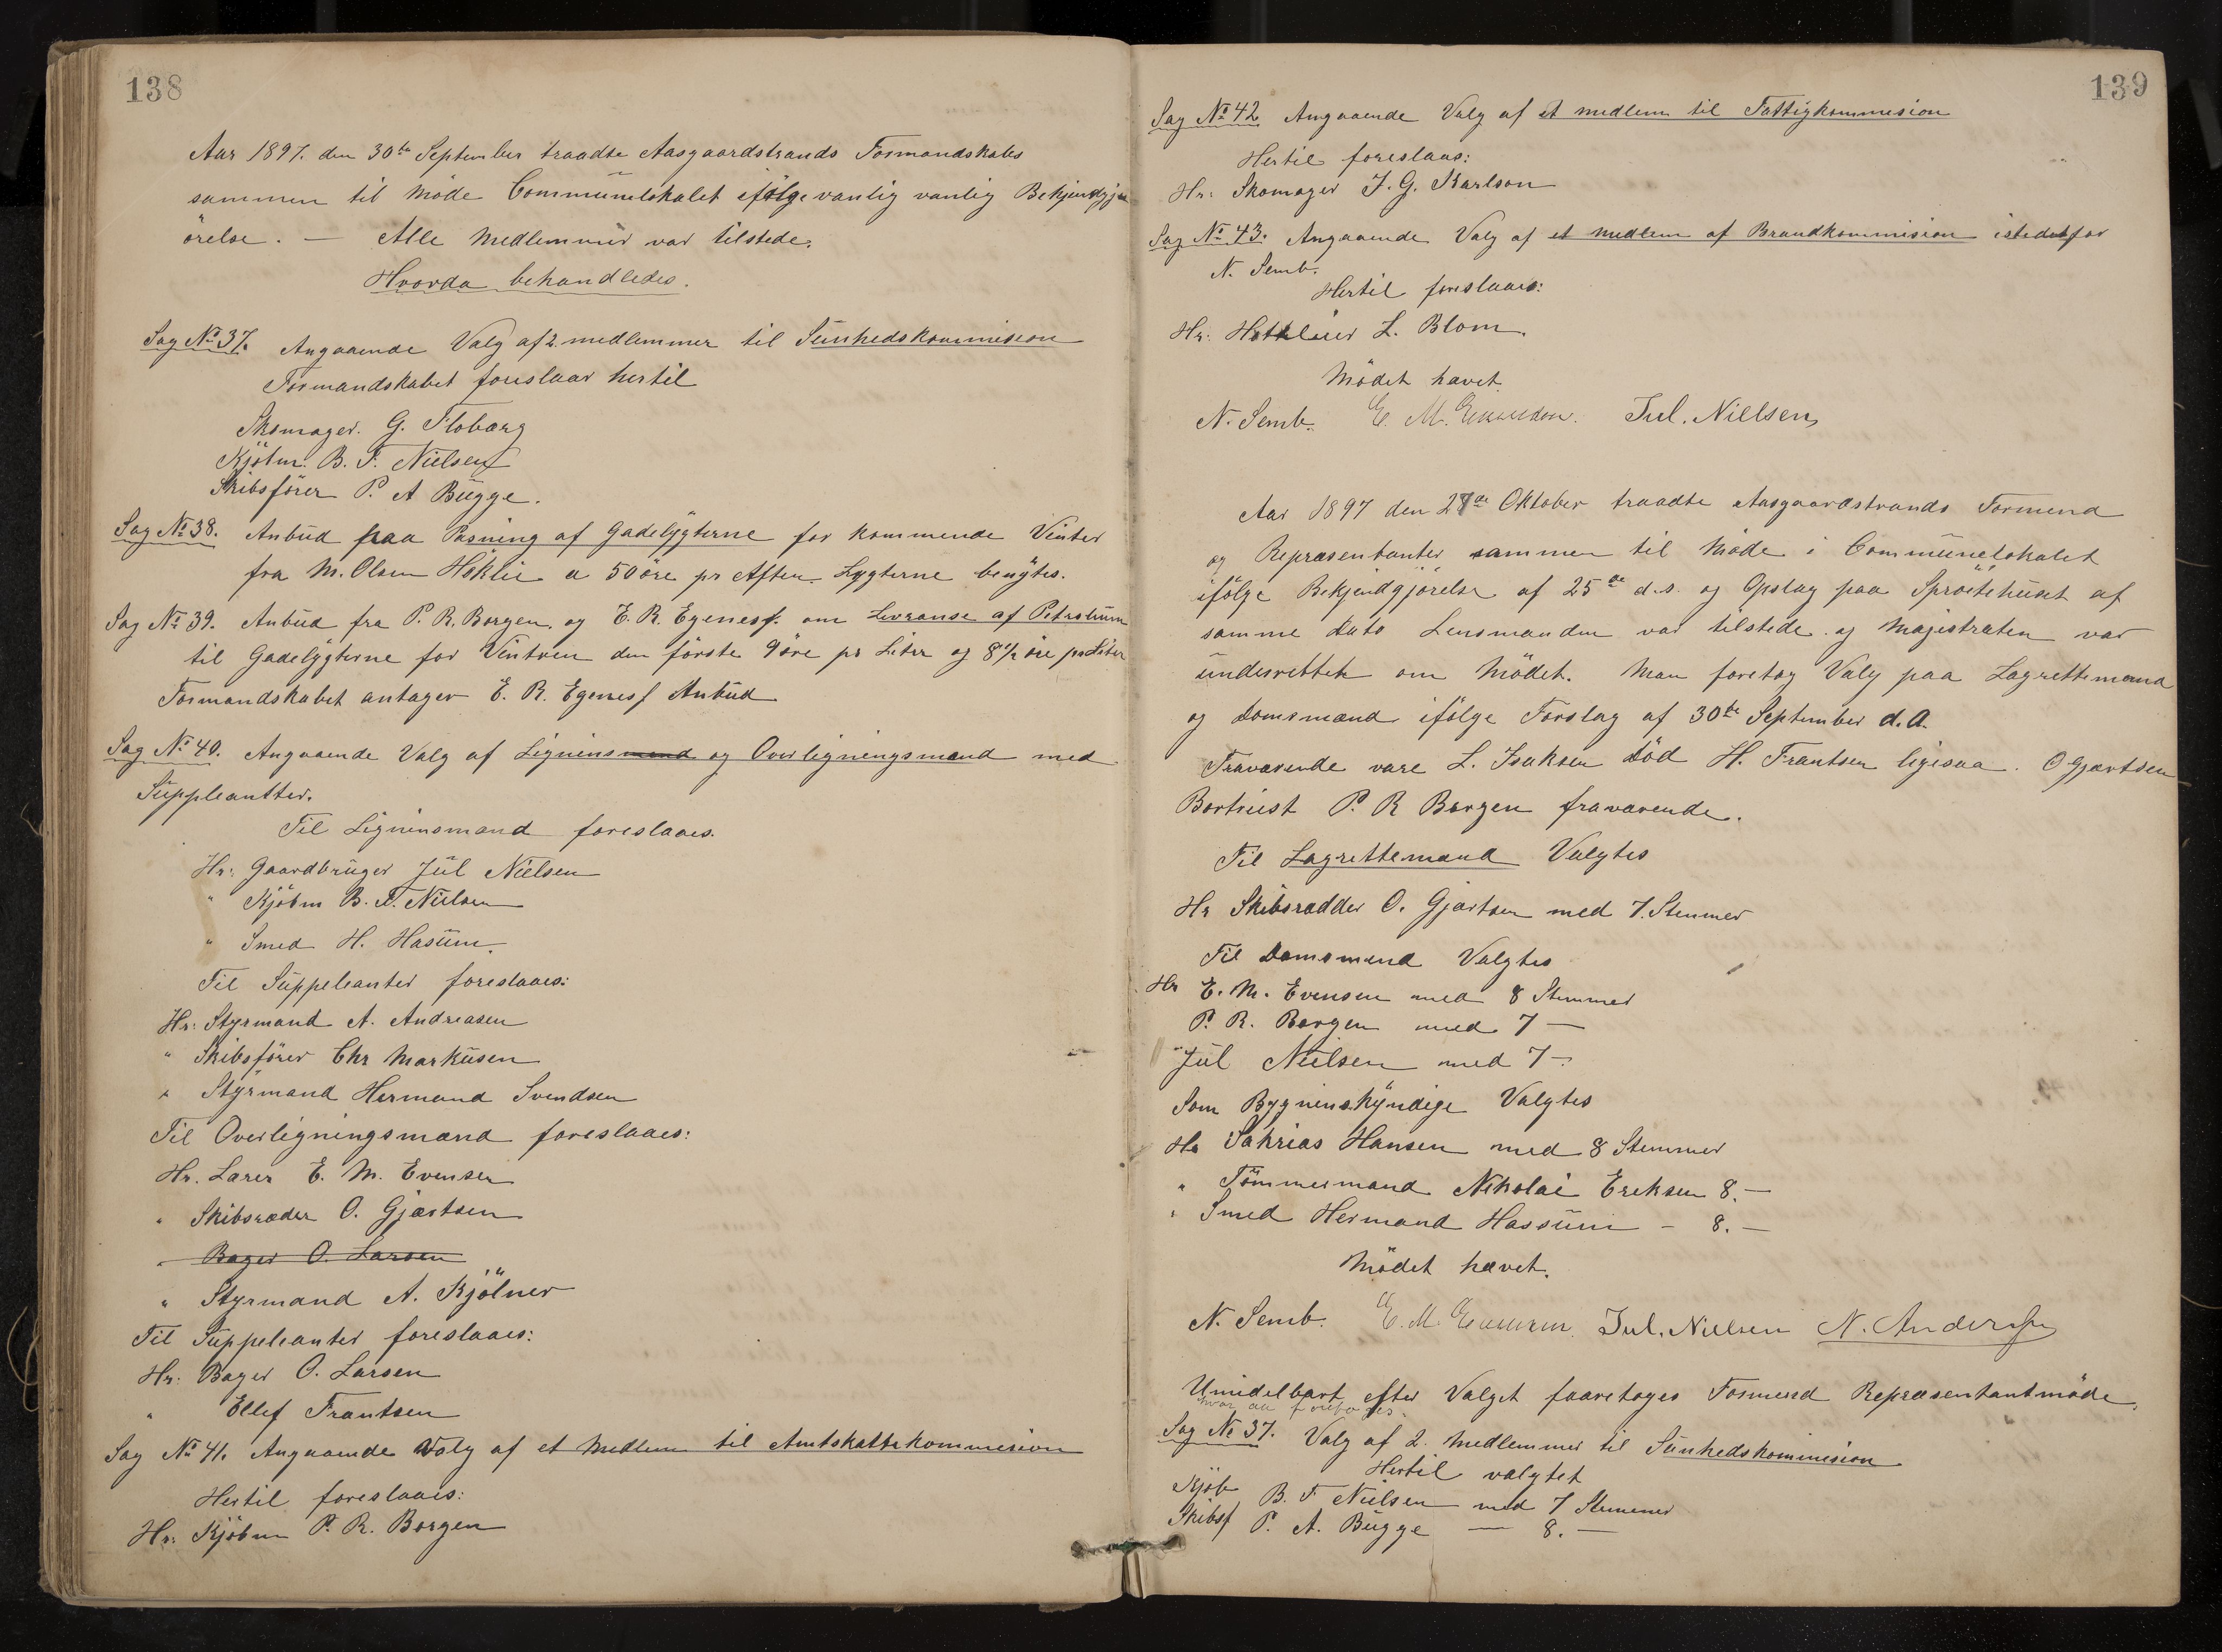 138
Aar 1897. den 30te September traadte Aasgaardstrands Formandskabs
sammen til Möde Communelokalet ifölge vanlig vanlig Bekjendgj
örelse. — Alle Medlemmer var tilstede.
Hvorda behandledes.
Sag No 37. Angaaende Valg af 2 medlemmer til Sunhedskommision
Formandskabet foreslaar hertil
Skomager. G. Floberg
Kjöbm. B. F. Nielsen
Skibsförer P. A Bugge.
Sag No 38. Anbud paa Pasning af Gadelygterne for kommende Vinter
fra M. Olsen Höklie a 50 öre pr Aften Lygterne benyttes.
Sag No 39. Anbud fra P. R. Borgen. og E. R. Egenes. om Levranse af Petroleum
til Gadelygterne for Vintren den förste 9 öre pr Liter og 8 1/2 öre pr Liter
Formandskabet antager E. R. Egenes Anbud
Sag No 40. Angaaende Valg af Ligninsmænd og Overligningsmænd med
Suppleantter.
Til Ligninsmænd foreslaaes.
Hr: Gaardbruger Jul Nielsen
" Kjöbm B. F. Nielsen
" Smed H. Hasum.
Til Suppeleanter foreslaaes:
Hr: Styrmand A. Andreasen
" Skibsförer Chr Markusen
" Styrmand Hermand Svendsen
Til Overligningsmænd foreslaaes:
Hr. Lærer E. M. Evensen
" Skibsreder O. Gjærtsen
" Bager O. Larsen
" Styrmand A. Kjölner
Til Suppeleanter foreslaaes:
Hr: Bager O. Larsen
" Ellef Frantsen
Sag No 41. Angaaende Valg af et Medlem til Amtskattekommision
Hertil foreslaaes:
Hr: Kjöbm P. R. Borgen
139
Sag No 42 Angaaende Valg af et medlem til Fattigkommesion
Hertil foreslaas:
Hr: Skomager J. G. Karlson
Sag No 43. Angaaende Valg af et medlem af Brandkommision istedetfor
N. Semb.
Hertil foreslaaes:
Hr: Hotelier L. Blom.
Mödet hævet.
N. Semb. E. M. Evensen. Jul. Nielsen
Aar 1897 den 27de Oktober traadte Aasgaardstrands Formend
og Repræsentanter sammen til Möde i Communelokalet
ifölge Bekjendgjörelse af 25de d.s. og Opslag paa Spröitehuset af
samme Dato Lensmanden var tilstede og Majestraten var
underrettet om Mödet. Man foretog Valg paa Lagrettemænd
og Domsmænd ifölge Forslag af 30te September d. A.
Fraværende vare L. Isaksen Död H. Frantsen ligesaa. O Gjærtsen
Bortreist P. R Borgen fraværende.
Til Lagrettemænd Valgtes
Hr Skibsrædder O. Gjærtsen med 7. Stemmer
Til Domsmænd Valgtes
Hr E. M. Evensen med 8 Stemmer
P. R. Borgen med 7 —
" Jul Nielsen med 7 —
Som Bygninskyndige Valgtes
Hr Sakrias Hansen med 8 Stemmer
" Tömmermand Nikolai Ereksen 8. —
" Smed Hermand Hassum — 8. —
Mödet hævet.
N. Semb. E. M. Evensen. Jul. Nielsen N. Andersen
Umidelbart efter Valget faaretoges Formend Repræsentantmöde,
hvor da foretoges.
Sag No 37. Valg af 2. Medlemmer til Sunhedskommision
Hertil valgtet
Kjöb B. F Nielsen med 7 Stemmer
Skibsf P. A. Bugge — 8. —